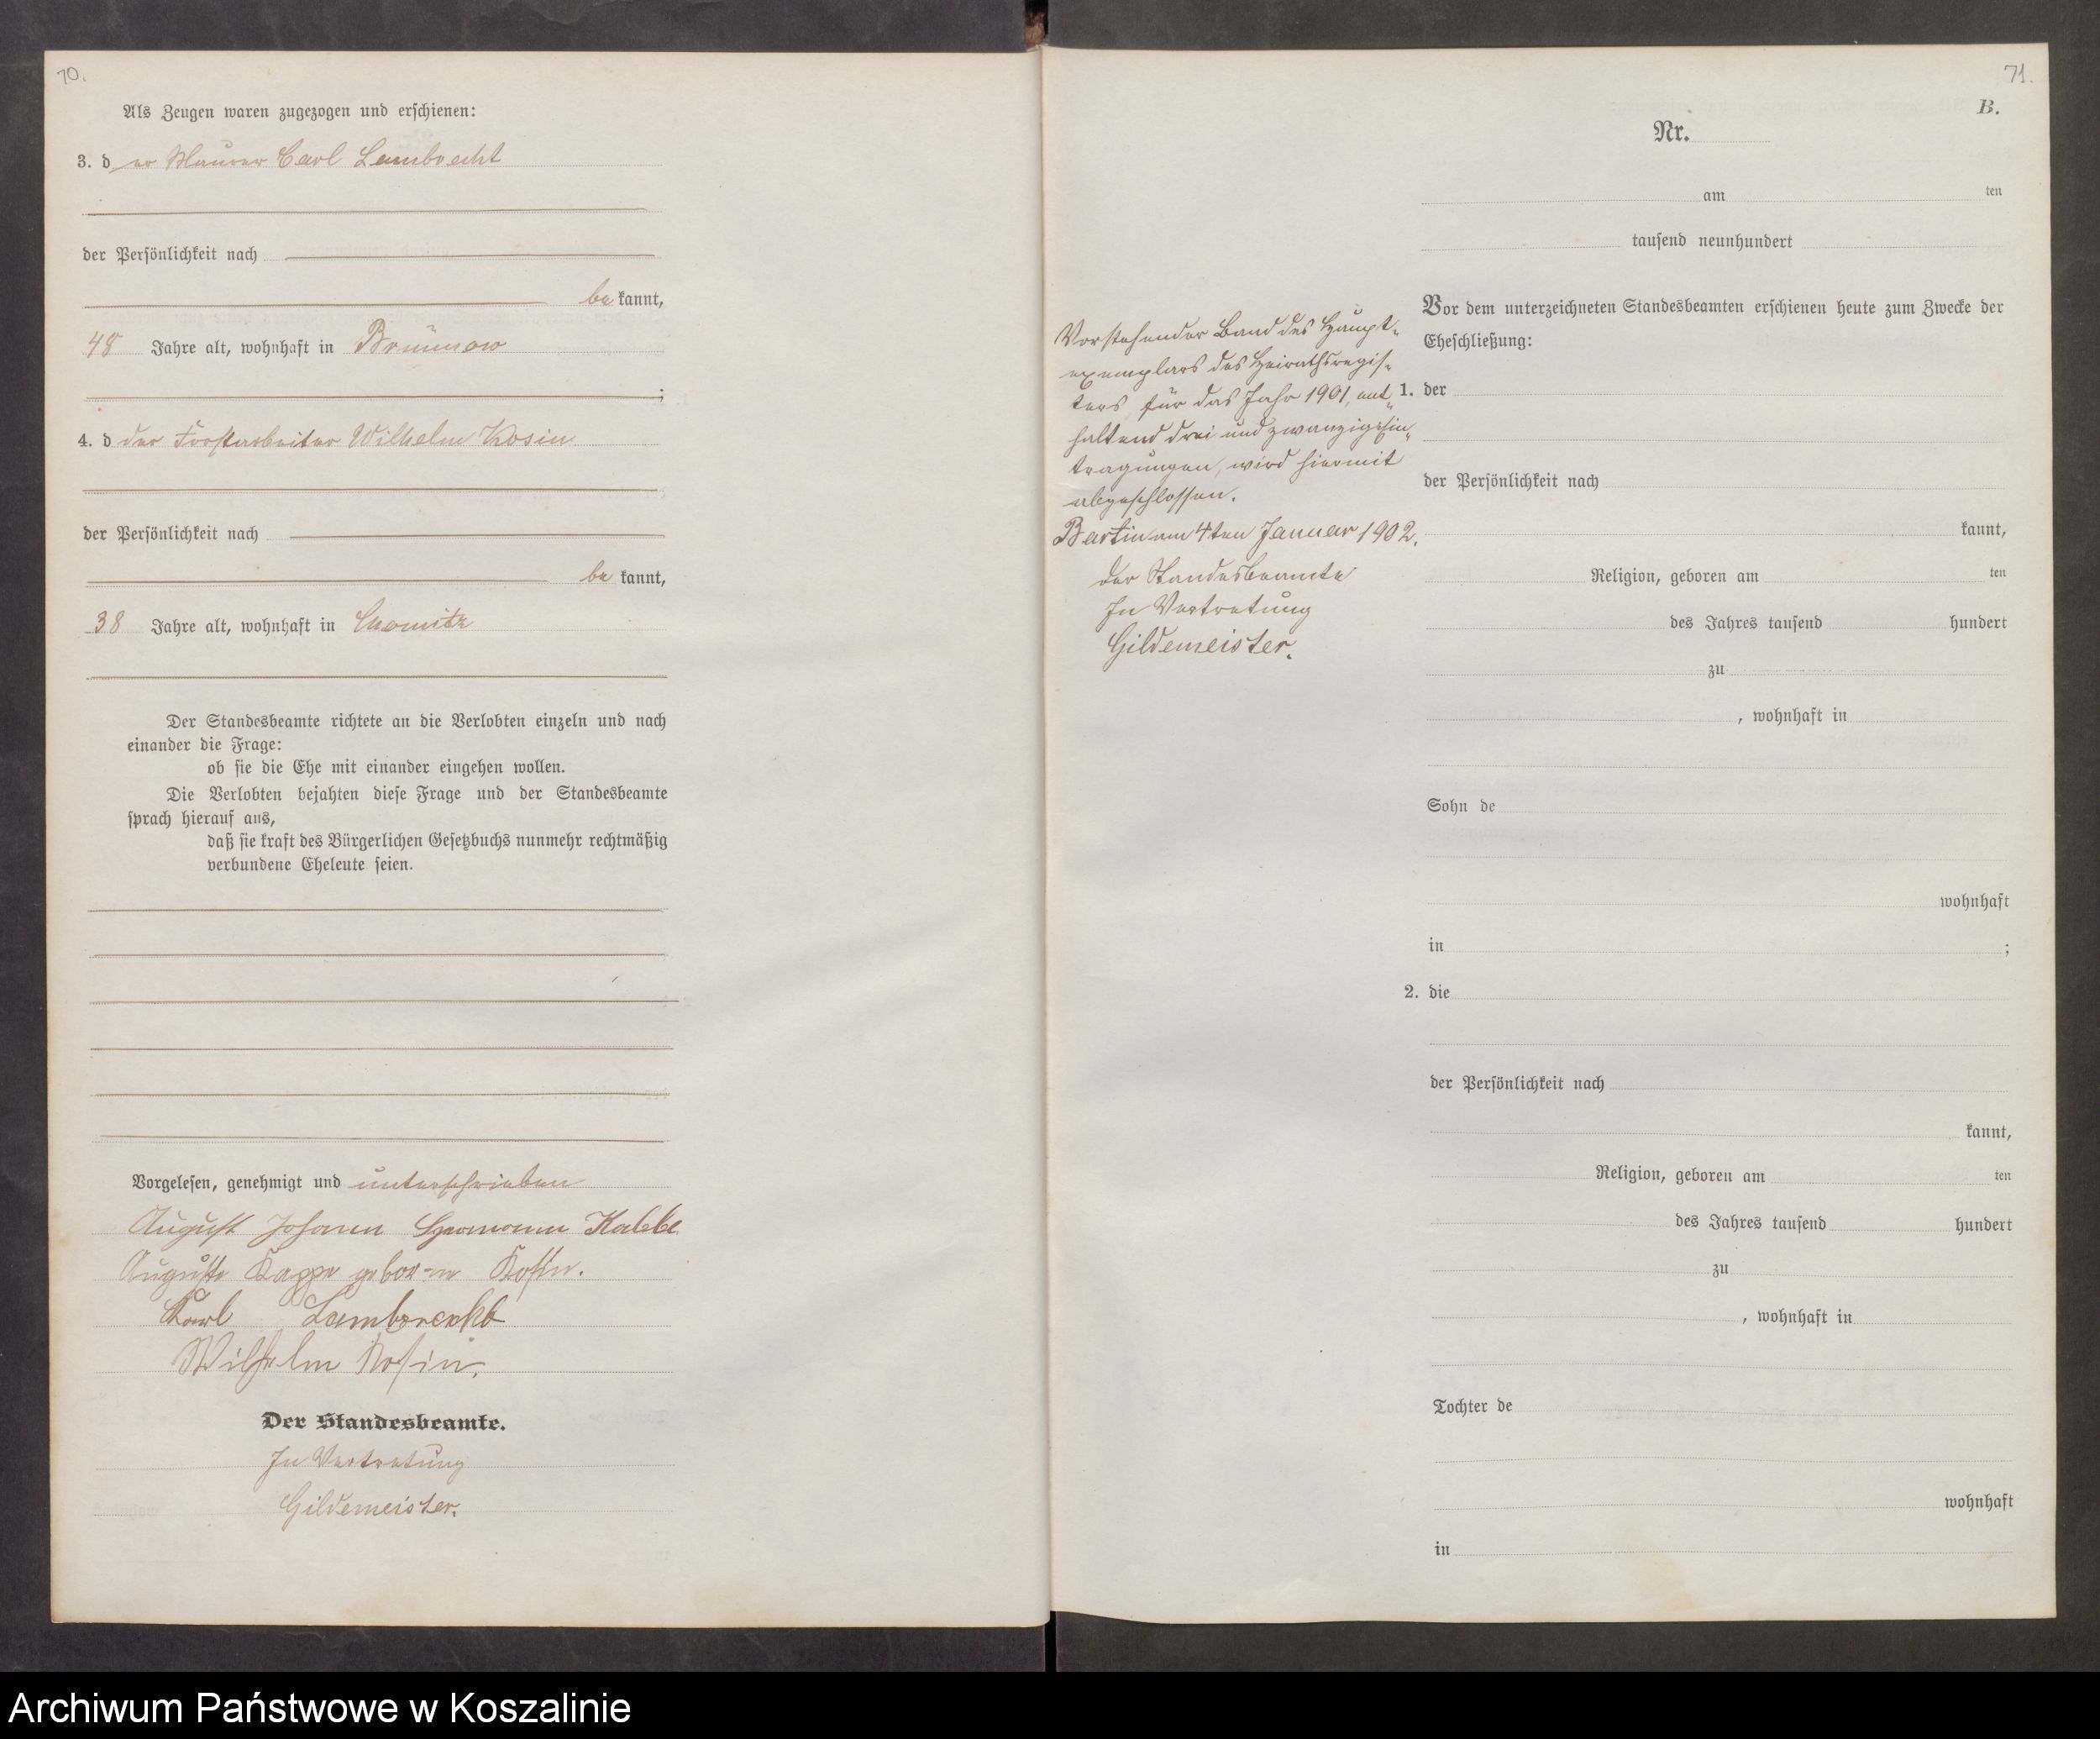 70.
Als Zeugen waren zugezogen und erschienen:
3. d er Maurer Carl Lambrecht
der Persönlichkeit nach
be kannt,
48 Jahre alt, wohnhaft in Brünnow
;
4. d der Forstarbeiter Wilhelm Kosin
der Persönlichkeit nach
be kannt,
38 Jahre alt, wohnhaft in
Der Standesbeamte richtete an die Verlobten einzeln und nach
einander die Frage:
ob sie die Ehe mit einander eingehen wollen.
Die Verlobten bejahten diese Frage und der Standesbeamte
sprach hierauf aus,
daß sie kraft des Bürgerlichen Gesetzbuchs nunmehr rechtmäßig
verbundene Eheleute seien.
Vorgelesen, genehmigt und unterschrieben
August Johann Hermann Kabbe
Auguste Kappe geborne Kosin.
Karl Lambrecht
Wilhelm Kosin.
Der Standesbeamte.
In Vertretung
Gildemeister.
71.
B.
Nr.
am ten
tausend neunhundert
Vor dem unterzeichneten Standesbeamten erschienen heute zum Zwecke der
Eheschließung:
Vorstehender Band des Haupt-
exemplars des Heirathsregis-
ters für das Jahr 1901, ent-
haltend drei und zwanzig Ein-
tragungen, wird hiermit
abgeschlossen.
Bartin am 4ten Januar 1902.
Der Standesbeamte
In Vertretung
Gildemeister.
1. der
der Persönlichkeit nach
kannt,
Religion, geboren am ten
des Jahres tausend hundert
zu
, wohnhaft in
Sohn de
wohnhaft
in ;
2. die
der Persönlichkeit nach
kannt,
Religion, geboren am ten
des Jahres tausend hundert
zu
, wohnhaft in
Tochter de
wohnhaft
in
Archiwum Państwowe w Koszalinie